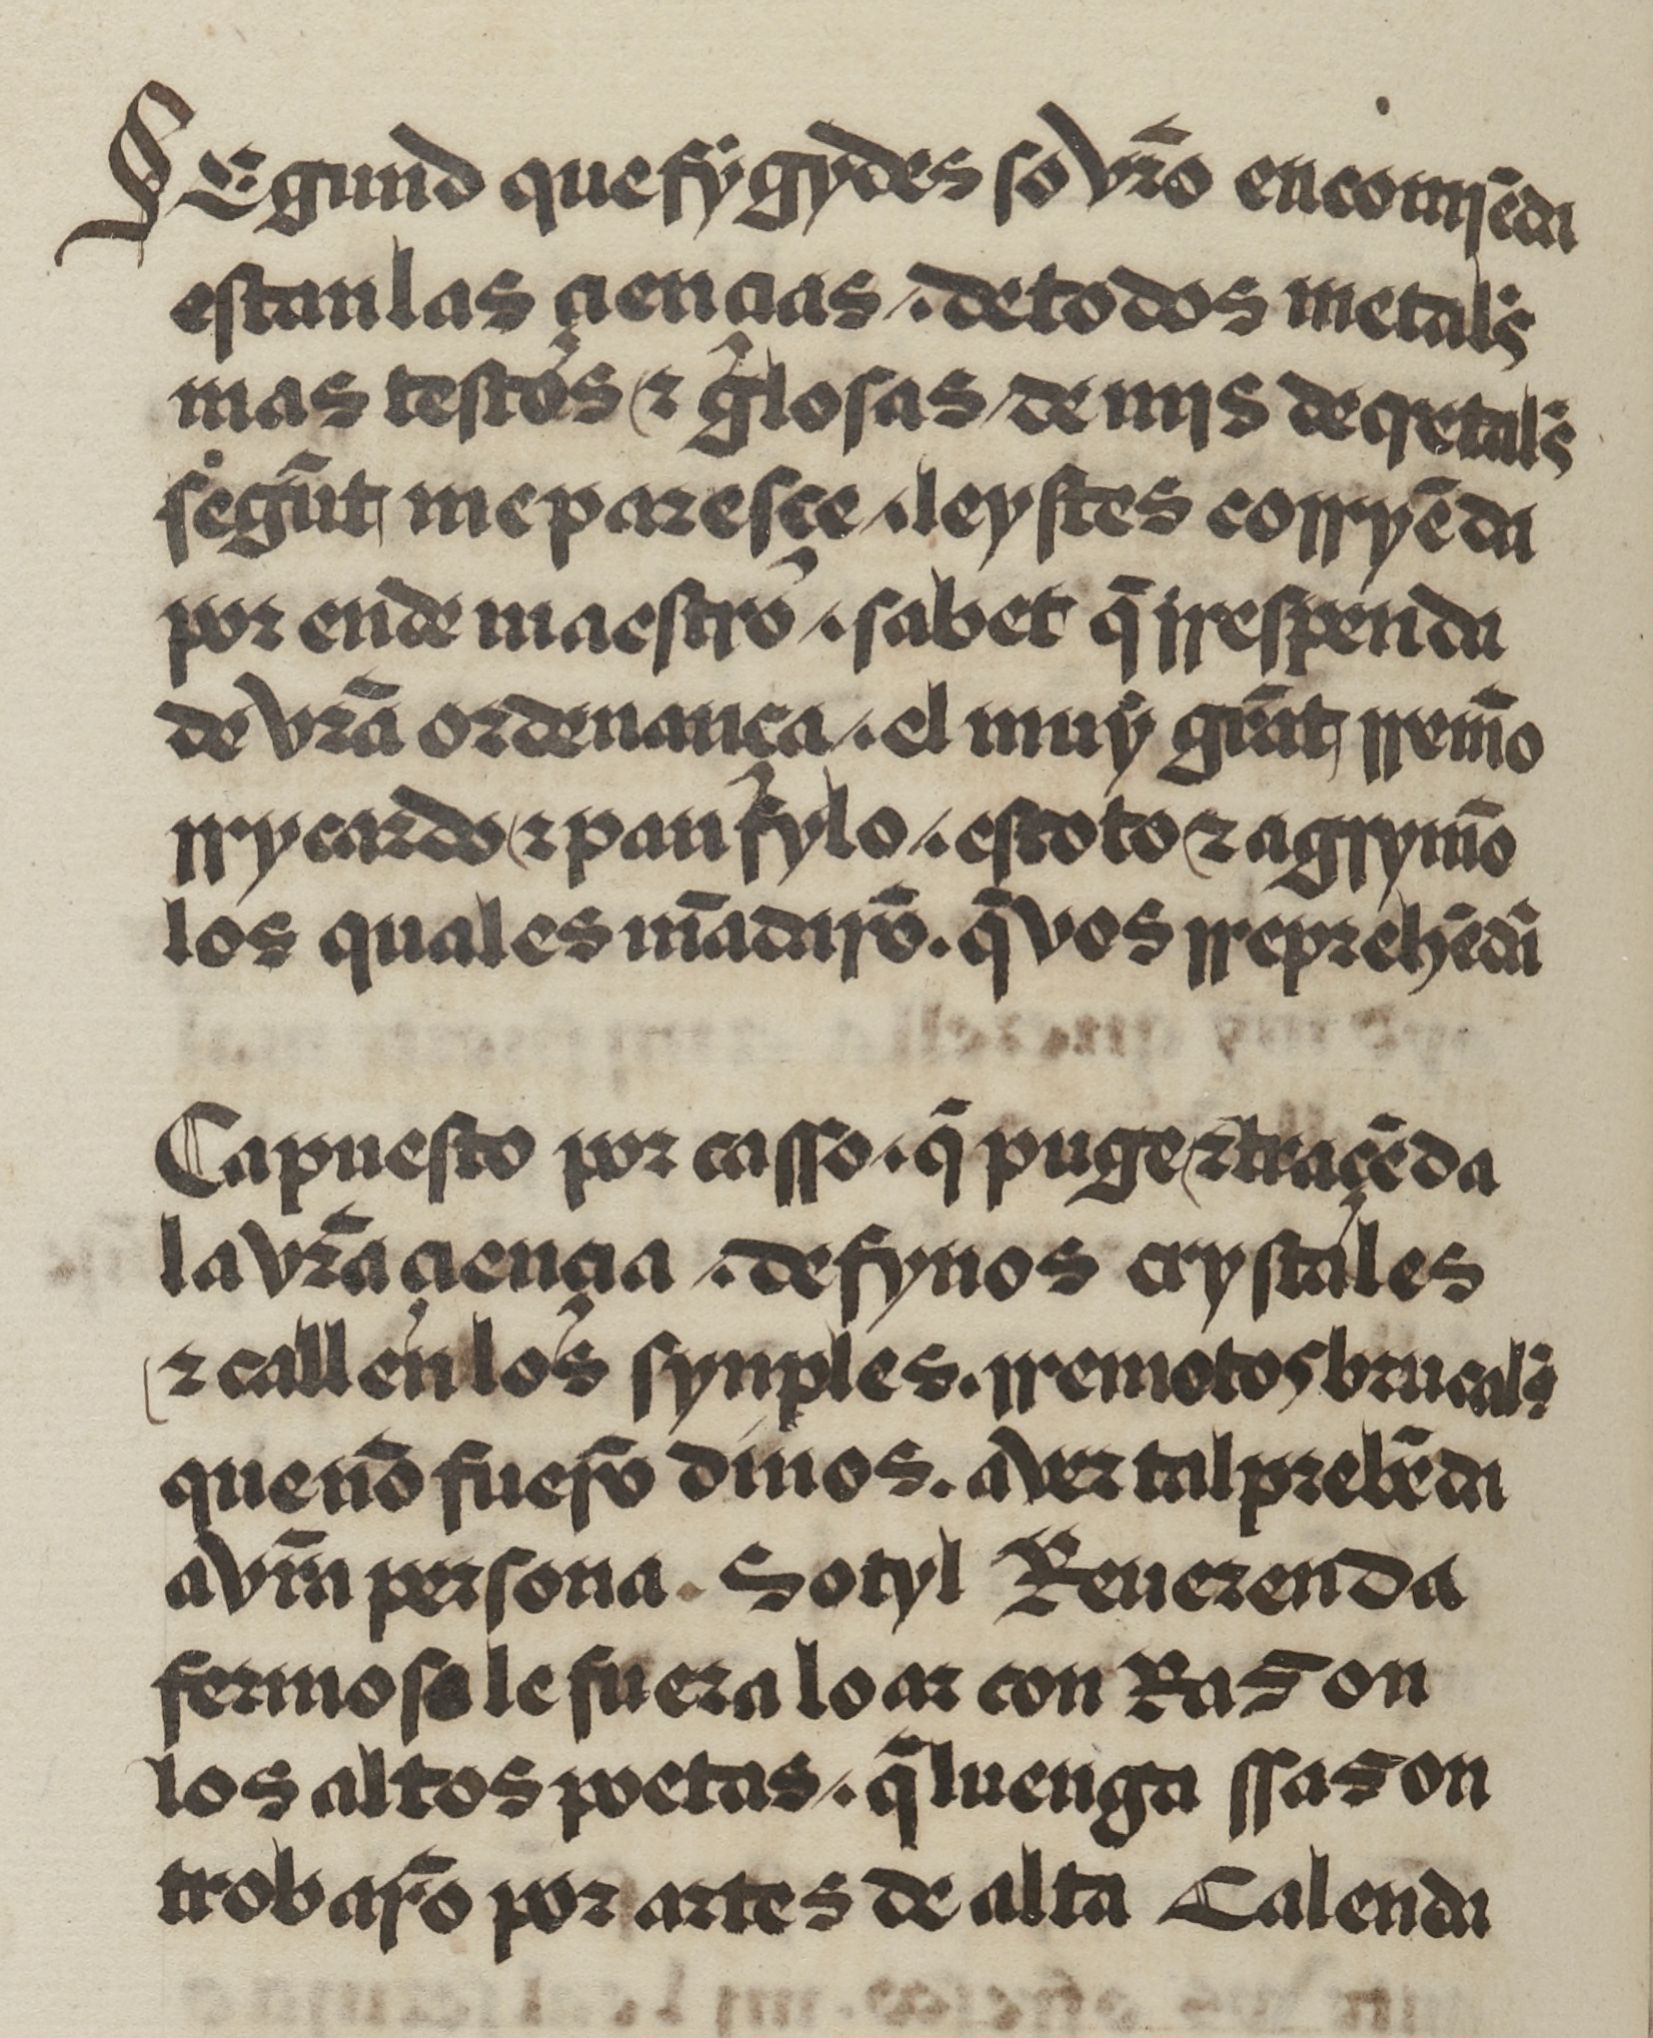 SEgund que fyzydes so vr̃o encomiẽda
estan las çiençias /. de todos metales
mas testos ⁊ glosas / de mis decretales
segũt me paresçe /. leystes corryẽda
por ende maestro /. sabet q̃ rrespenda
de vr̃a ordenança /. el muy grãt rremõ
rrycardo ⁊ panfylo /. estoto ⁊ agrymõ
los quales mãdarõ . q̃ vos rreprehẽda

Ca puesto por casso . q̃ puge ⁊ traçẽda
la vr̃a çiençia /. de fynos crystales
⁊ callen los synples . rremotos brucales
que nõ fuerõ dinos . aver tal prebẽda
a vr̃a persona . Sotyl Reuerenda
fermoso le fuera loar con Rason
los altos poetas /. q̃ luenga ssason
trobarõ por artes de alta Calenda